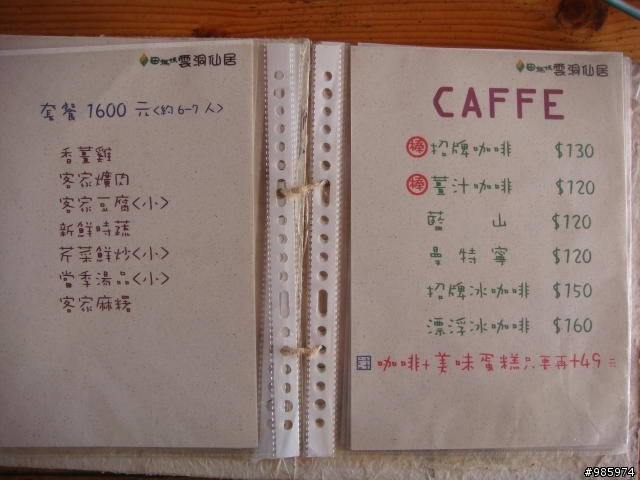 雲洞仙居
套餐 1600 元<約6-7人>
香薑雞
客家爌肉
客家豆腐<小>
新鮮時蔬
芹菜鮮炒<小>
當季湯品<小>
客家麻糬
雲洞仙居
CAFFE
棒 招牌咖啡 $130
棒 薑汁咖啡 $120
藍山 $120
曼特寧 $120
招牌冰咖啡 $150
漂浮冰咖啡 $160
咖啡+美味蛋糕只要再+49元
#985974